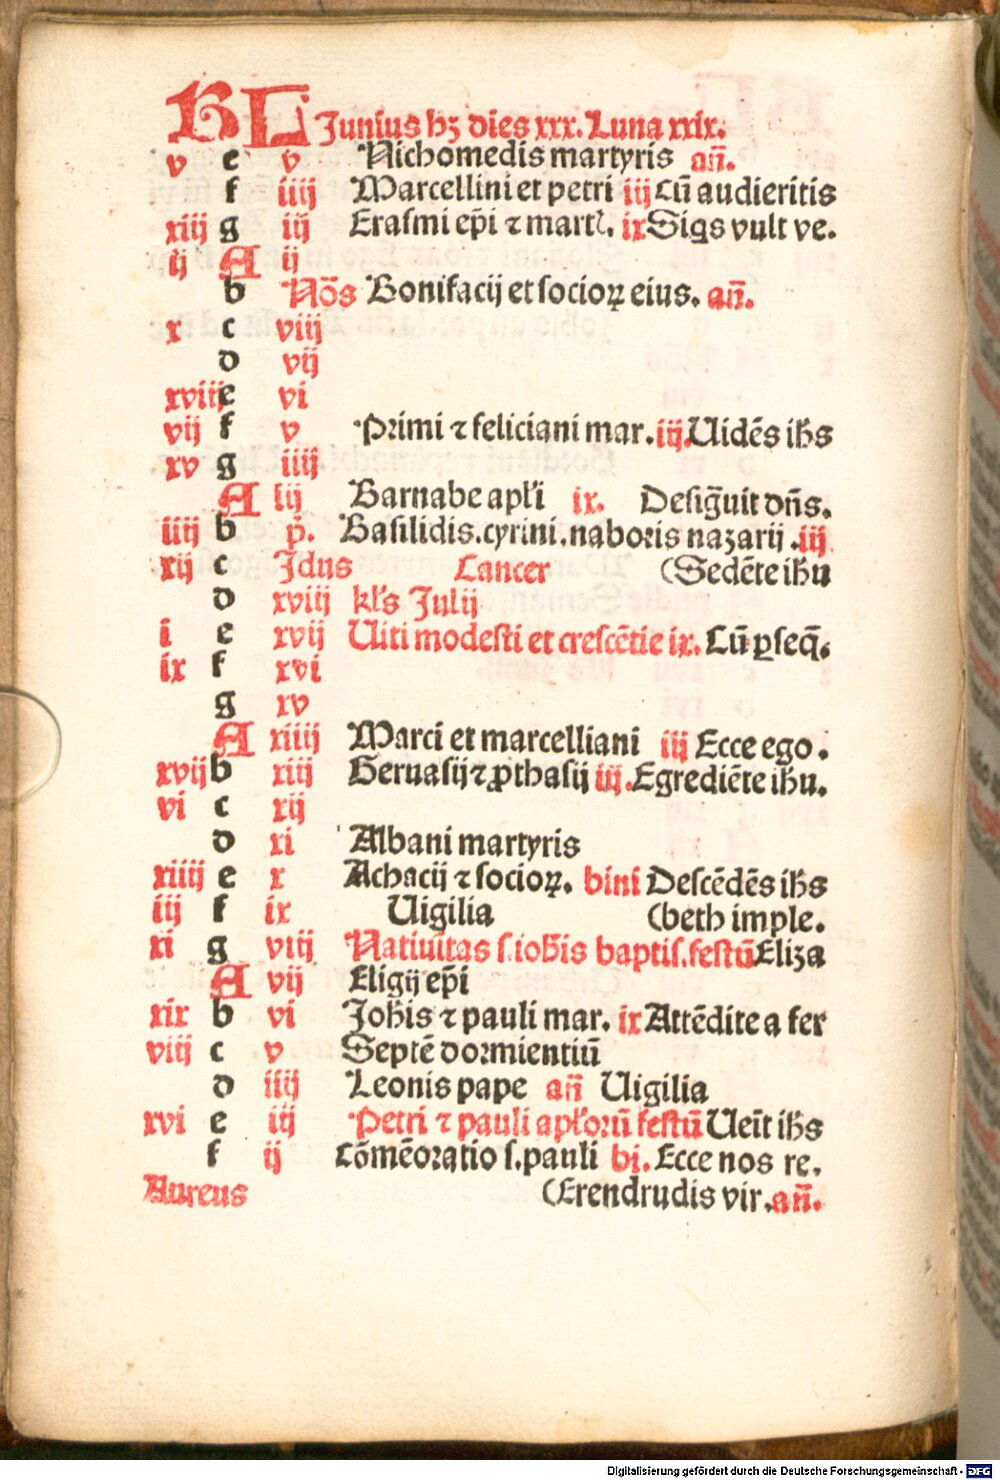 KL Junius hꝫ dies xxx. Luna xxix.
v e v Nichomedis martyris an̄.
f iiij Marcellini et petri iij Cū audieritis
xiij g iij Erasmi ep̄i ⁊ martꝭ. ix Sigs vult ve.
ij A ij
b Nōs Bonifacij et socioꝝ eius. an̄.
x c viij
d vij
xviij e vi
vij f v Primi ⁊ feliciani mar. iij. Uidēs ih̄s
xv g iiij
A iij Barnabe apl̄i ix. Desiḡuit dn̄s.
iiij b p̄. Basilidis. cyrini. naboris nazarij. iij
xij c Idus Cancer (Sedēte ih̄u
d xviij kl̄s Julij
i e xvij Uiti modesti et crescētie ix. Cū ꝑseq̄.
ix f xvi
g xv
A xiiij Marci et marcelliani iij Ecce ego.
xvij b xiij Geruasij ⁊ ꝓthasij iij. Egrediēte ih̄u.
vi c xij
d xi Albani martyris
xiiij e x Achacij ⁊ socioꝝ. bini Descēdēs ih̄s
iij f ix Uigilia (beth imple.
xi g viij Natiuitas s. ioh̄is baptis. festū Eliza
A vij Eligij ep̄i
xix b vi Joh̄is ⁊ pauli mar. ix Attēdite a fer
viij c v Septē dormientiū
d iiij Leonis pape an̄ Uigilia
xvi e iij Petri ⁊ pauli apl̄orū festū Ueīt ih̄s
f ij Cōmēoratio s. pauli bi. Ecce nos re.
Aureus (Erendrudis vir. an̄.
Digitalisierung gefördert durch die Deutsche Forschungsgemeinschaft - DFG